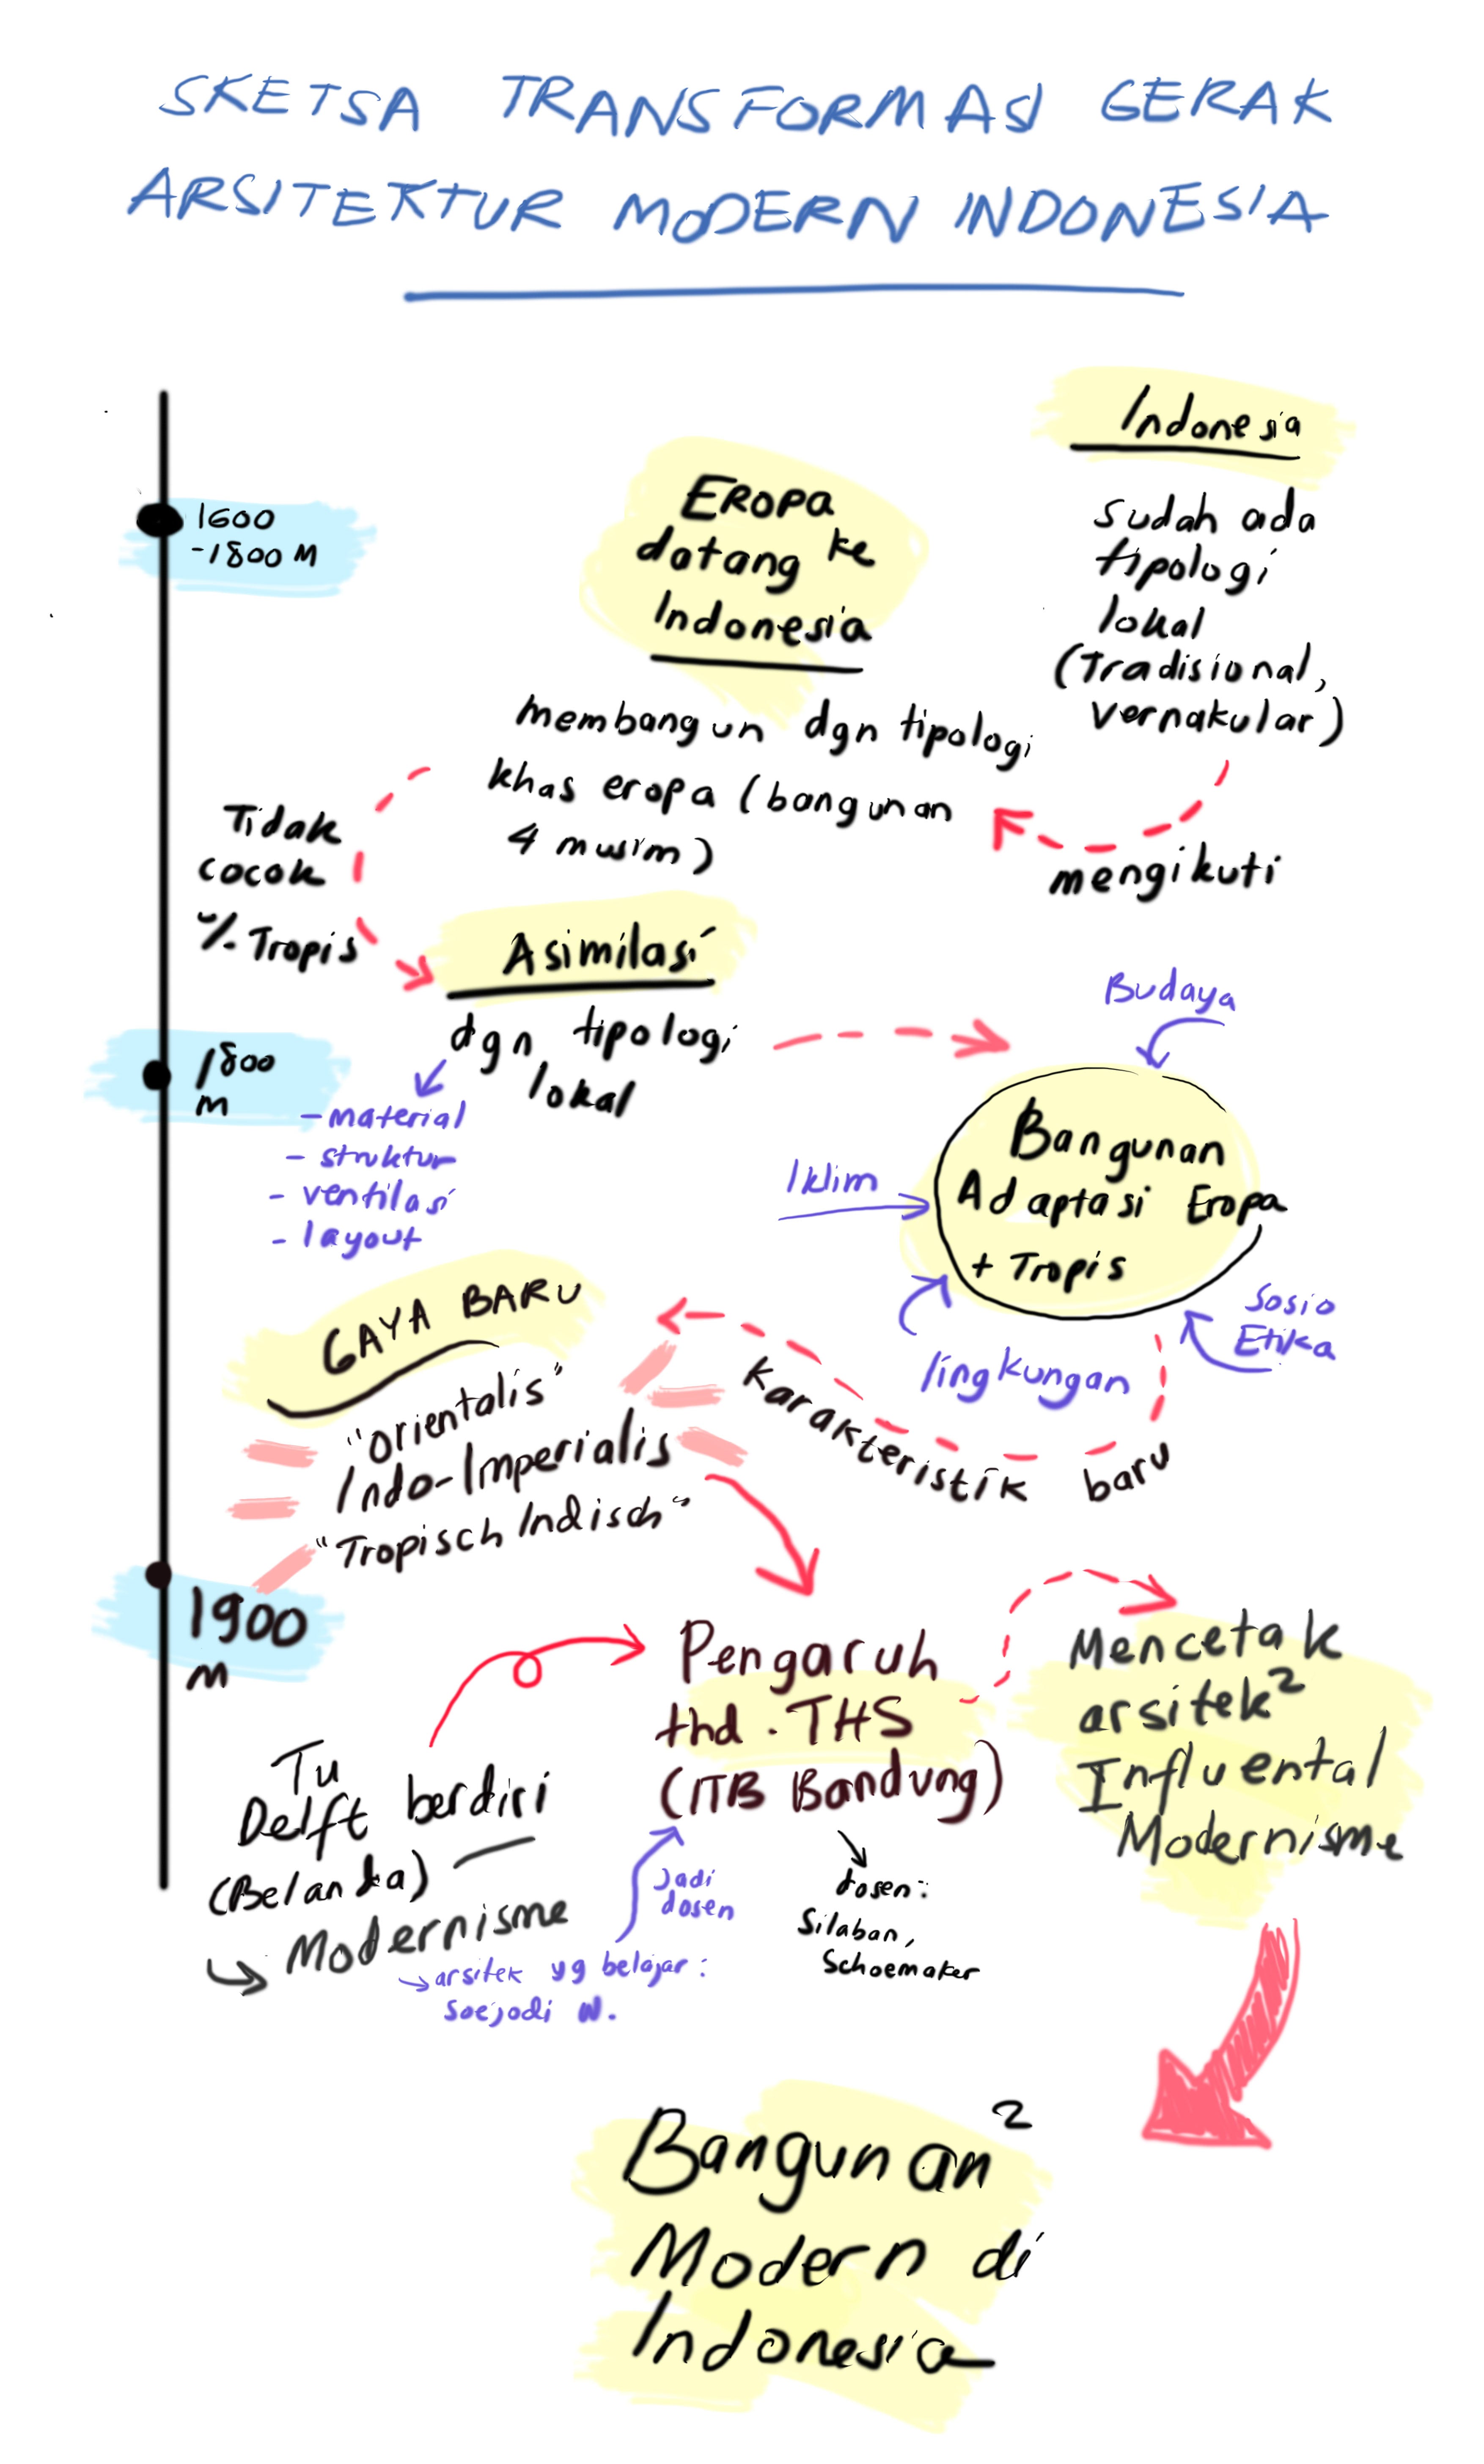 SKETSA TRANSFORMASI GERAK
ARSITEKTUR MODERN INDONESIA
1600
-1800 M
EROPA
datang ke
Indonesia
membangun dgn tipologi
khas eropa (bangunan
4 musim)
Indonesia
sudah ada
tipologi
lokal
(Tradisional,
vernakular)
mengikuti
Tidak
cocok
Tropis
Asimilasi
dgn tipologi
lokal
1800
M
- material
- struktur
- ventilasi
- layout
Budaya
Iklim
Bangunan
Adaptasi Eropa
+ Tropis
lingkungan
Sosio
Etika
karakteristik baru
GAYA BARU
"orientalis"
Indo-Imperialis
"Tropisch Indisch"
1900
M
Pengaruh
thd. THS
(ITB Bandung)
Mencetak
arsitek²
Influental
Modernisme
TU
Delft berdiri
(Belanda)
Modernisme
arsitek yg belajar:
Soejodi W.
Jadi
dosen
dosen:
Silaban,
Schoemaker
Bangunan²
Modern di
Indonesia